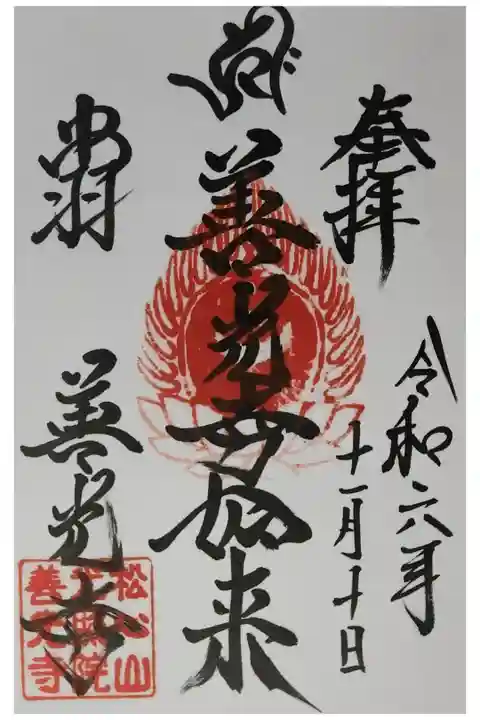 奉拝
令和六年
十一月十日
善光寺如来
出羽
善光寺
松心山
院
善光寺